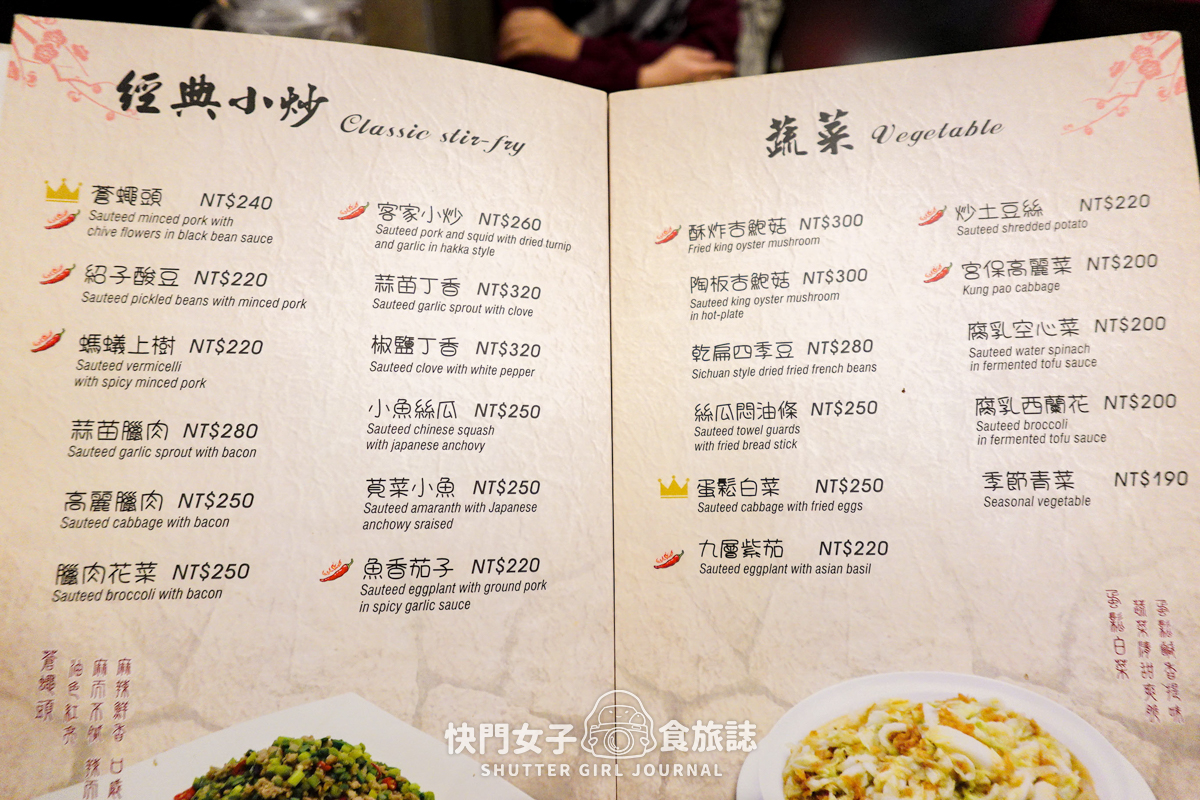 經典小炒 Classic stir-fry
蒼蠅頭 NT$240
Sauteed minced pork with
chive flowers in black bean sauce
紹子酸豆 NT$220
Sauteed pickled beans with minced pork
螞蟻上樹 NT$220
Sauteed vermicelli
with spicy minced pork
蒜苗臘肉 NT$280
Sauteed garlic sprout with bacon
高麗臘肉 NT$250
Sauteed cabbage with bacon
臘肉花菜 NT$250
Sauteed broccoli with bacon
客家小炒 NT$260
Sauteed pork and squid with dried turnip
and garlic in hakka style
蒜苗丁香 NT$320
Sauteed garlic sprout with clove
椒鹽丁香 NT$320
Sauteed clove with white pepper
小魚絲瓜 NT$250
Sauteed chinese squash
with japanese anchovy
莧菜小魚 NT$250
Sauteed amaranth with Japanese
anchowy sraised
魚香茄子 NT$220
Sauteed eggplant with ground pork
in spicy garlic sauce
蒼蠅頭
油色紅亮
麻而不膩 辣而
麻辣鮮香 口感
蔬菜 Vegetable
酥炸杏鮑菇 NT$300
Fried king oyster mushroom
陶板杏鮑菇 NT$300
Sauteed king oyster mushroom
in hot-plate
乾扁四季豆 NT$280
Sichuan style dried fried french beans
絲瓜悶油條 NT$250
Sauteed towel guards
with fried bread stick
蛋鬆白菜 NT$250
Sauteed cabbage with fried eggs
九層紫茄 NT$220
Sauteed eggplant with asian basil
炒土豆絲 NT$220
Sauteed shredded potato
宮保高麗菜 NT$200
Kung pao cabbage
腐乳空心菜 NT$200
Sauteed water spinach
in fermented tofu sauce
腐乳西蘭花 NT$200
Sauteed broccoli
in fermented tofu sauce
季節青菜 NT$190
Seasonal vegetable
蛋鬆白菜
快門女子 食旅誌
SHUTTER GIRL JOURNAL